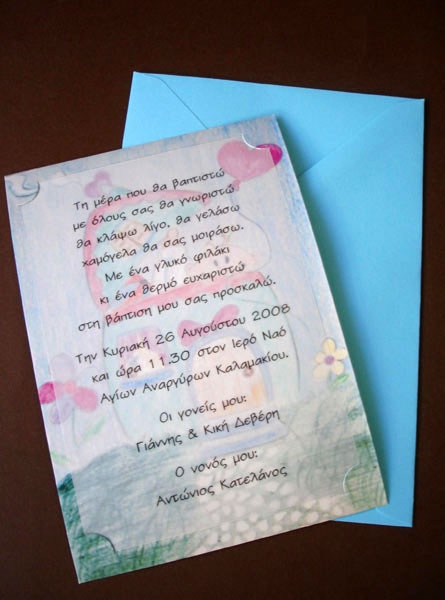 Τη μέρα που θα βαπτιστώ
με όλους σας θα γνωριστώ
θα κλάψω λίγο, θα γελάσω
χαμόγελα θα σας μοιράσω.
Με ένα γλυκό φιλάκι
κι ένα θερμό ευχαριστώ
στη βάπτιση μου σας προσκαλώ.
Την Κυριακή 26 Αυγούστου 2008
και ώρα 11.30 στον Ιερό Ναό
Αγίων Αναργύρων Καλαμακίου.
Οι γονείς μου:
Γιάννης & Κική Δεβέρη
Ο νονός μου:
Αντώνιος Κατελάνος